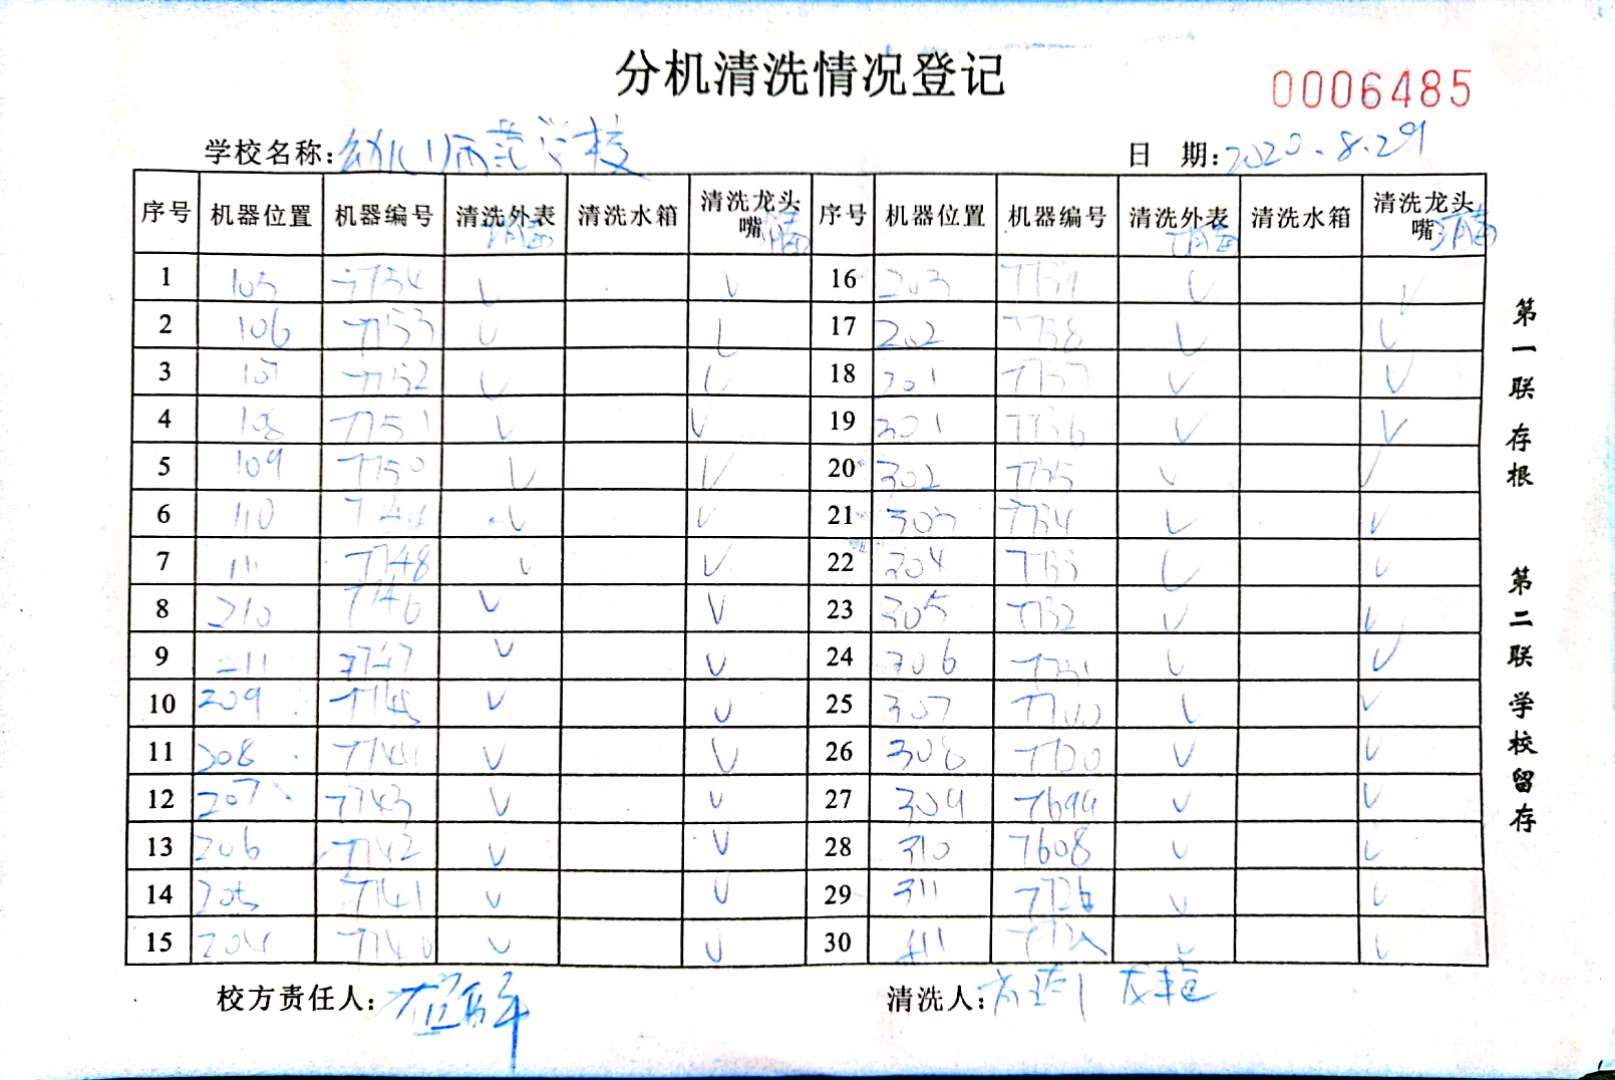 分机清洗情况登记
0006485
学校名称:幼儿师范学校 日 期:2020.8.29
序号 机器位置 机器编号 清洗外表 清洗水箱 清洗龙头嘴 序号 机器位置 机器编号 清洗外表 清洗水箱 清洗龙头嘴
消毒 消毒 消毒 消毒
1 105 7754 √ √ 16 203 7739 √ √
2 106 7753 √ √ 17 202 7738 √ √
3 107 7752 √ √ 18 201 7737 √ √
4 108 7751 √ √ 19 301 7736 √ √
5 109 7750 √ √ 20 302 7735 √ √
6 110 √ √ 21 303 7734 √ √
7 111 7748 √ √ 22 304 7733 √ √
8 210 7746 √ √ 23 305 7732 √ √
9 211 7747 √ √ 24 306 7731 √ √
10 209 7745 √ √ 25 307 √ √
11 208 √ √ 26 308 √ √
12 207 7743 √ √ 27 309 7699 √ √
13 206 7742 √ √ 28 310 7608 √ √
14 205 7741 √ √ 29 311 7726 √ √
15 204 7740 √ √ 30 411 √ √
校方责任人: 清洗人:
第一联存根 第二联学校留存